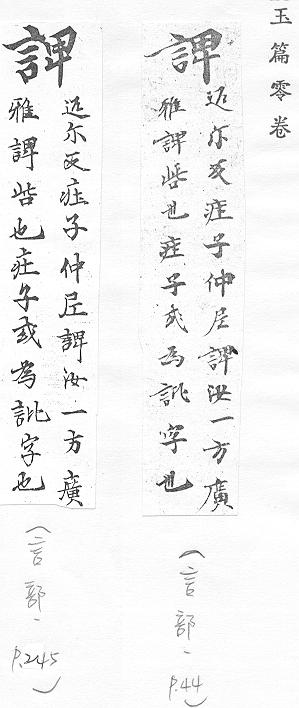 玉篇零卷
諀
匹尔反莊子仲尼諀汝一方廣
雅諀呰也莊子或為訿字也
(言部、P.44)
諀
匹尔反莊子仲尼諀汝一方廣
雅諀呰也莊子或為訿字也
(言部、P.245)